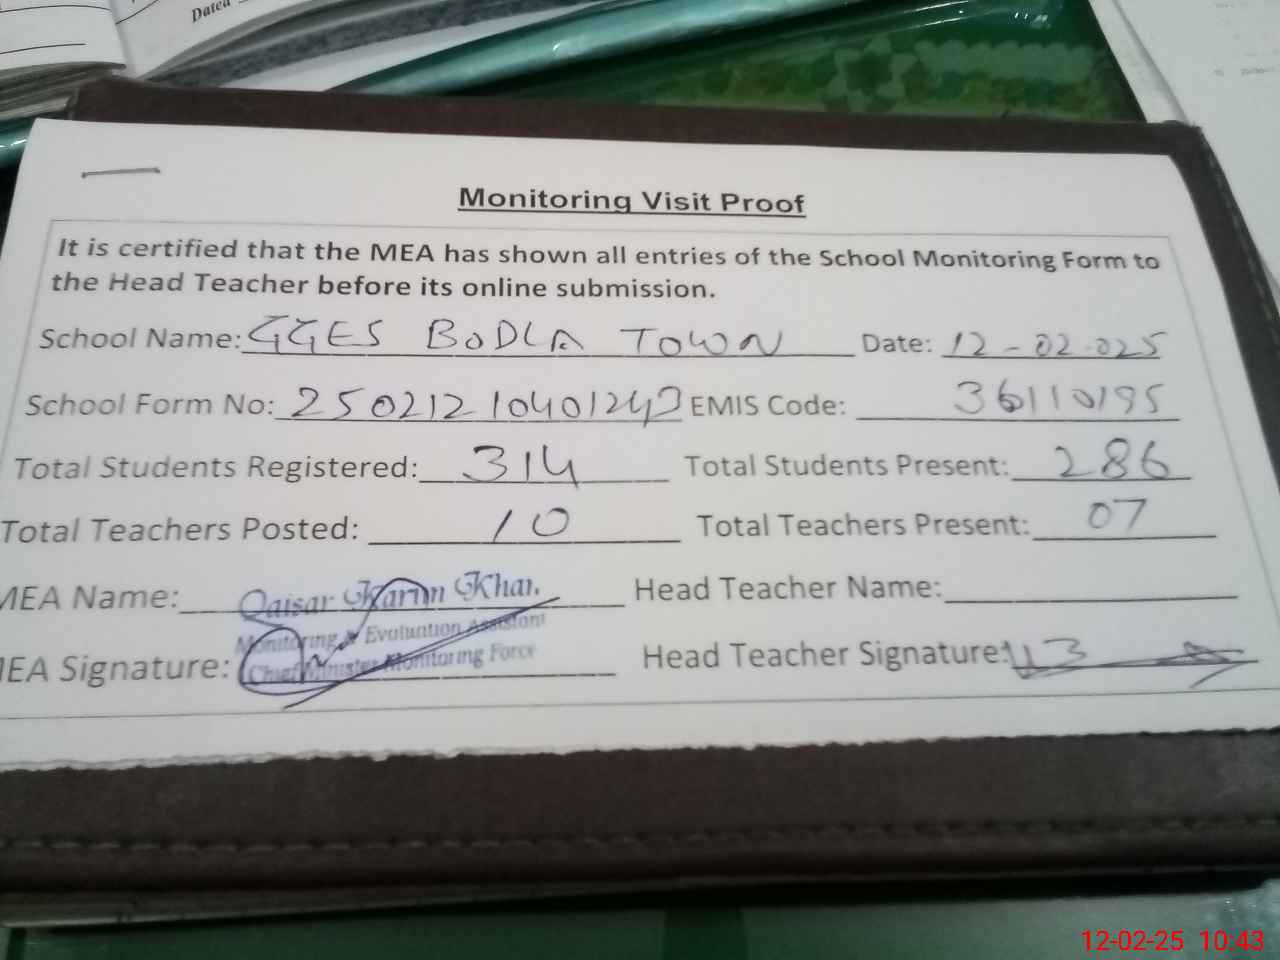 Dated
Monitoring Visit Proof
It is certified that the MEA has shown all entries of the School Monitoring Form to
the Head Teacher before its online submission.
School Name: GGES BODLA TOWN Date: 12-02-025
School Form No: EMIS Code: 36110195
Total Students Registered: 314 Total Students Present: 286
Total Teachers Posted: 10 Total Teachers Present: 07
MEA Name: Qaisar Karim Khan Head Teacher Name:
Monitoring & Evaluation Assistant
MEA Signature: Chief Minister Monitoring Force Head Teacher Signature:
12-02-25 10:43